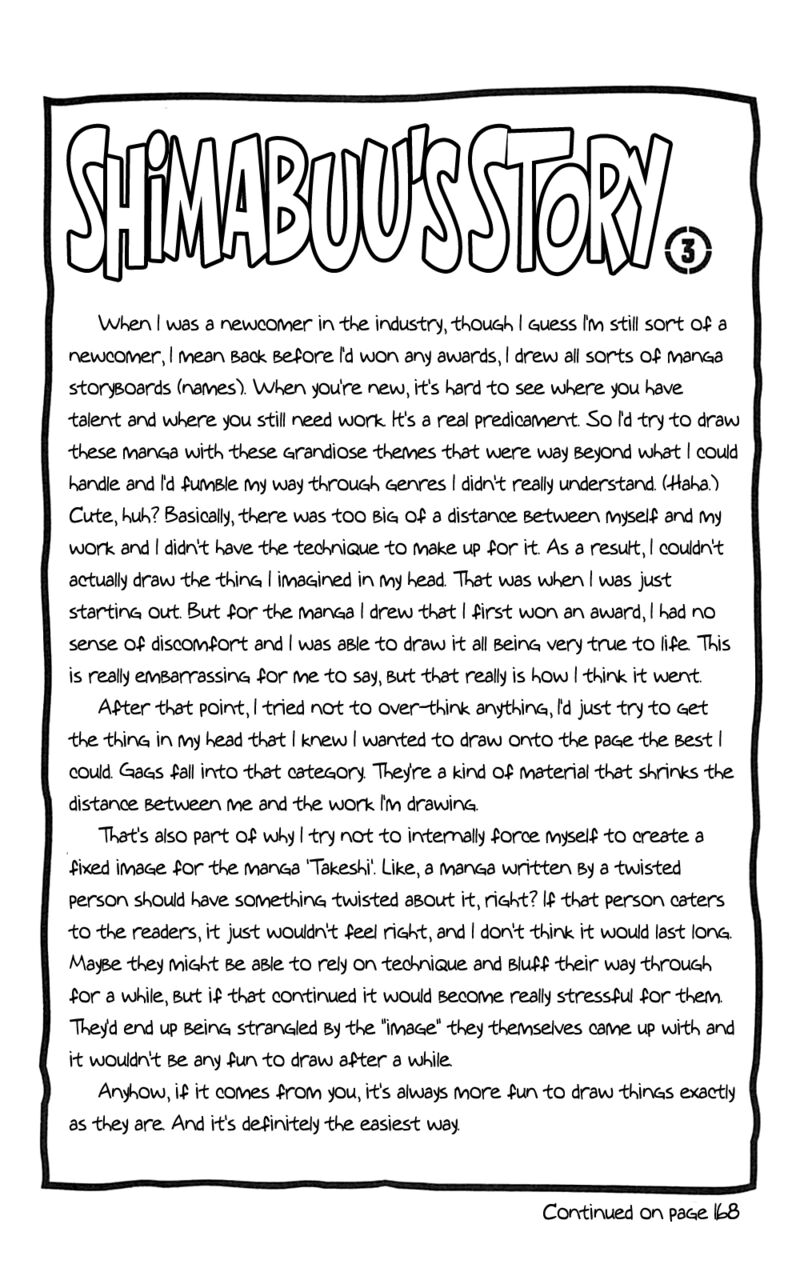 SHiMABUU'S STORY 3
When I was a newcomer in the industry, though I guess I'm still sort of a
newcomer, I mean back before I'd won any awards, I drew all sorts of manga
storyboards (names). When you're new, it's hard to see where you have
talent and where you still need work. It's a real predicament. So I'd try to draw
these manga with these grandiose themes that were way beyond what I could
handle and I'd fumble my way through genres I didn't really understand. (Haha.)
Cute, huh? Basically, there was too big of a distance between myself and my
work and I didn't have the technique to make up for it. As a result, I couldn't
actually draw the thing I imagined in my head. That was when I was just
starting out. But for the manga I drew that I first won an award, I had no
sense of discomfort and I was able to draw it all being very true to life. This
is really embarrassing for me to say, but that really is how I think it went.
After that point, I tried not to over-think anything, I'd just try to get
the thing in my head that I knew I wanted to draw onto the page the best I
could. Gags fall into that category. They're a kind of material that shrinks the
distance between me and the work I'm drawing.
That's also part of why I try not to internally force myself to create a
fixed image for the manga 'Takeshi'. Like, a manga written by a twisted
person should have something twisted about it, right? If that person caters
to the readers, it just wouldn't feel right, and I don't think it would last long.
Maybe they might be able to rely on technique and bluff their way through
for a while, but if that continued it would become really stressful for them.
They'd end up being strangled by the "image" they themselves came up with and
it wouldn't be any fun to draw after a while.
Anyhow, if it comes from you, it's always more fun to draw things exactly
as they are. And it's definitely the easiest way.
Continued on page 168